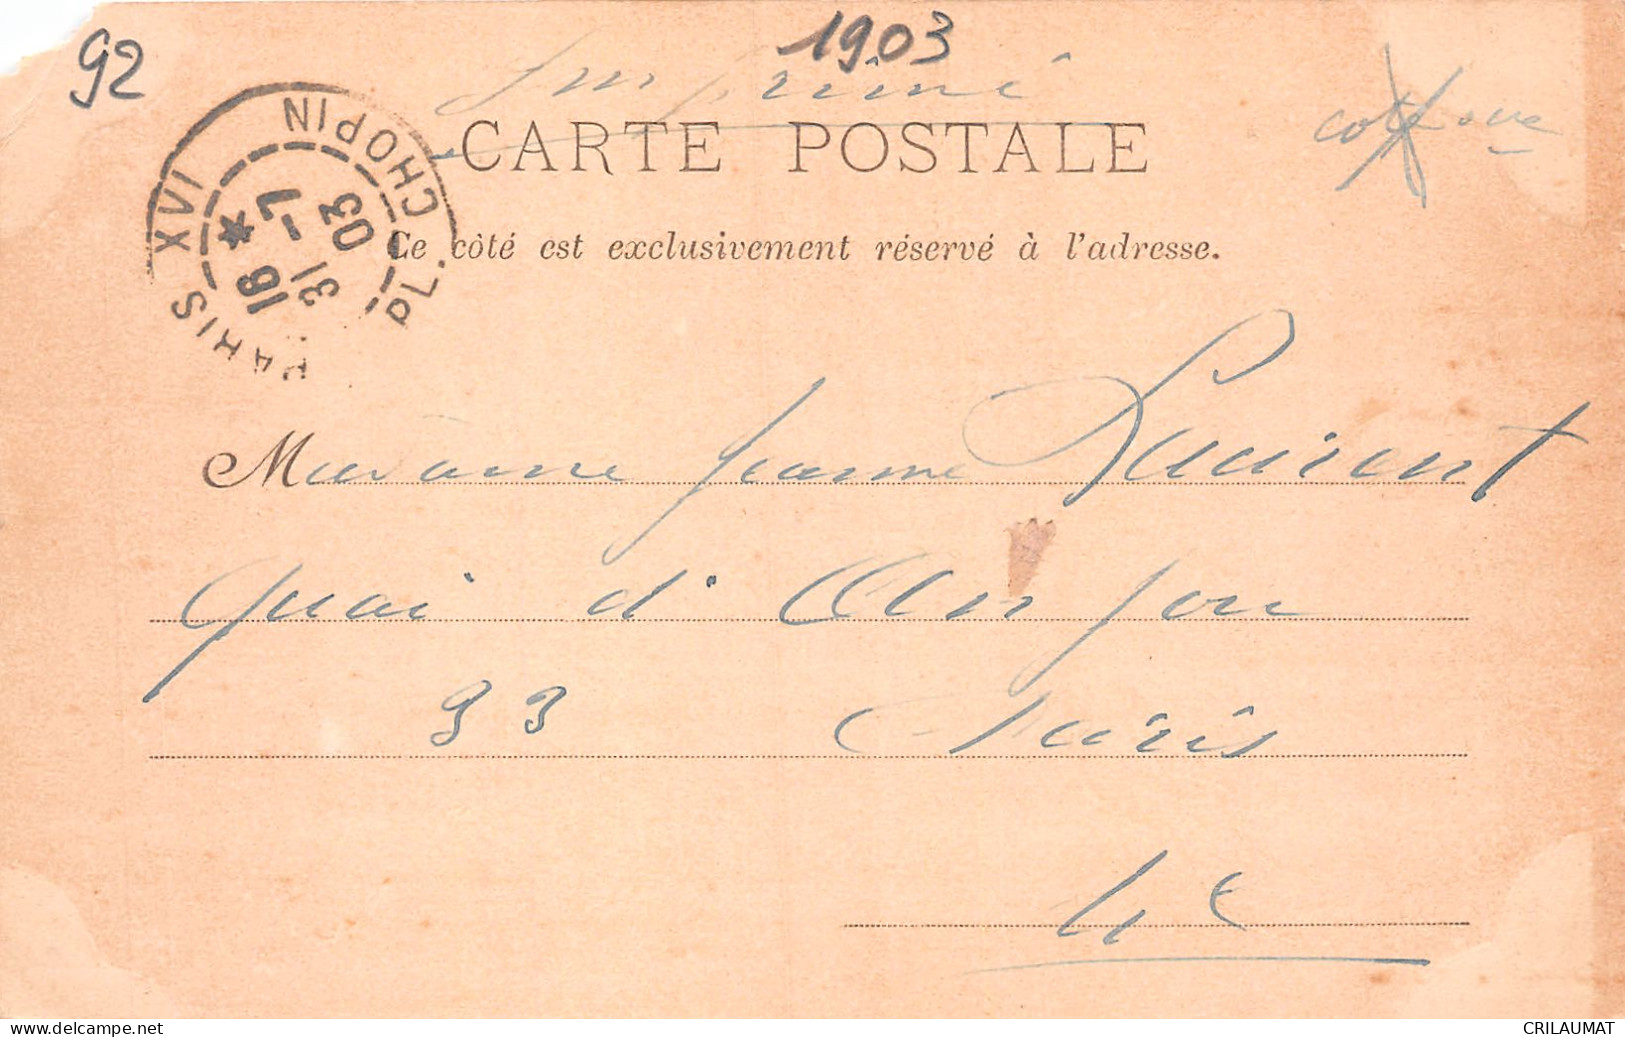 92
1903
Imprimé
CARTE POSTALE
Ce côté est exclusivement réservé à l'adresse.
PARIS XVI PL. CHOPIN
18 *
31 -7
03
Madame Jeanne Laurent
Quai d'Anjou
33 Paris
4e
www.delcampe.net
CRILAUMAT